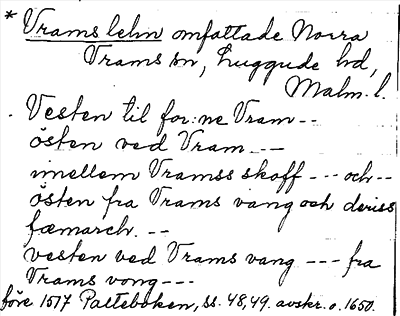 * Vrams lehn omfattade Norra
Vrams sn, Luggude hd,
Malm. l.
. Vesten til for:ne Vram--
östen ved Vram---
imellem Vramss skoff --- och--
östen fra Vrams vang och deriss
fæmarch. --
vesten ved Vrams vang --- fra
Vrams vong---
före 1517 Palteboken, ss. 48,49. avskr. o. 1650.